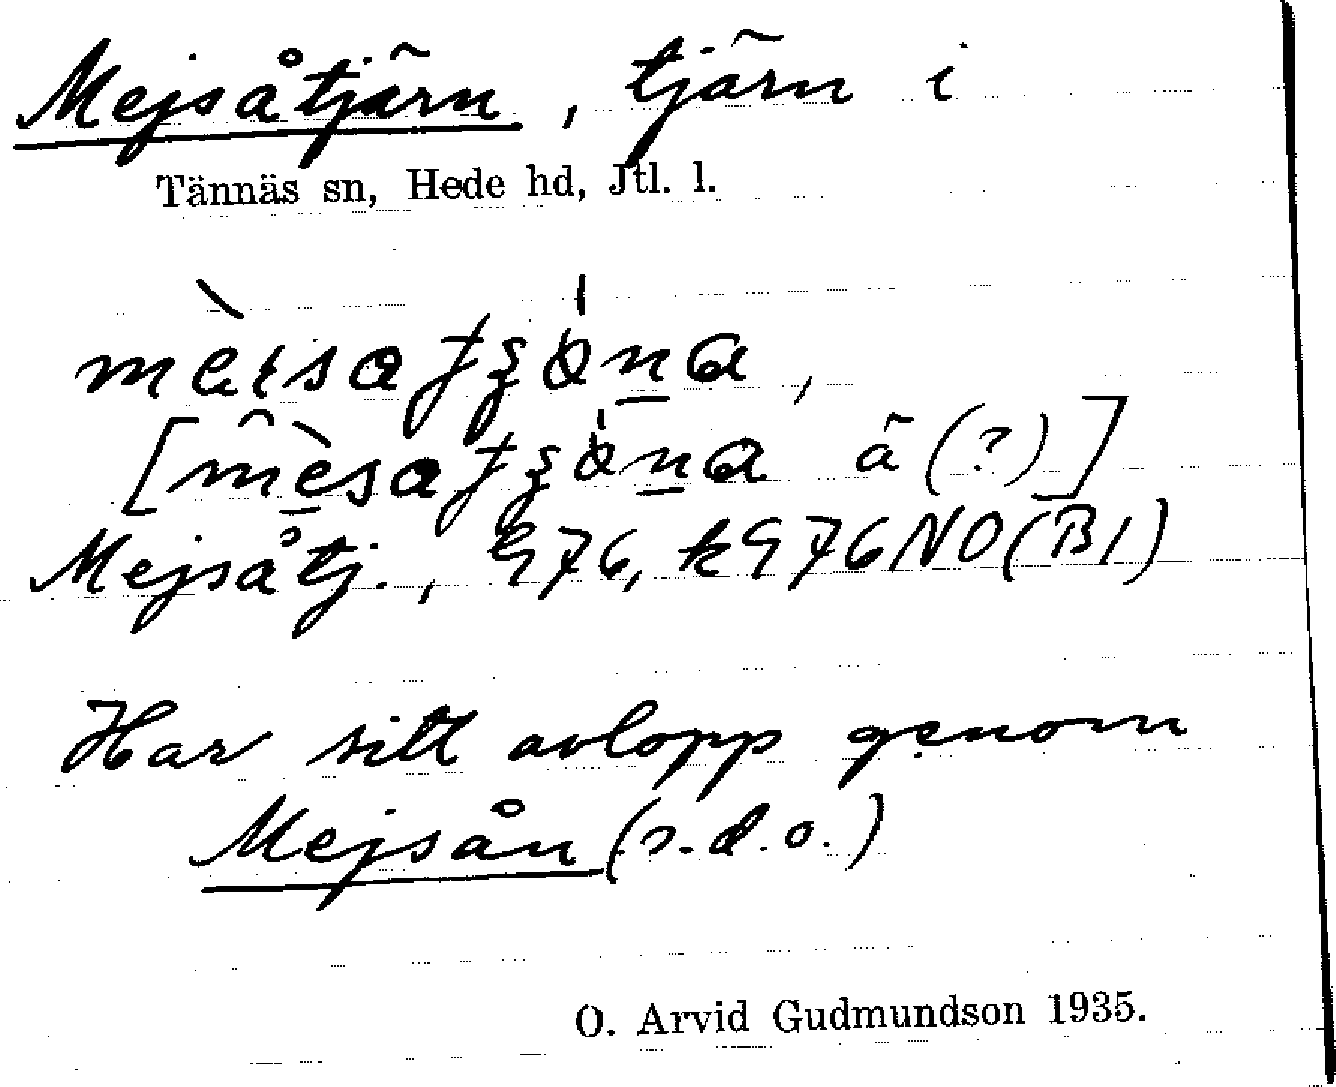 Mejsåtjärn, tjärn i
Tännäs sn, Hede hd, Jtl. l.
Mejsåtj., 976, k976NO(B1)
Har sitt avlopp genom
Mejsån (s.d.o.)
O. Arvid Gudmundson 1935.